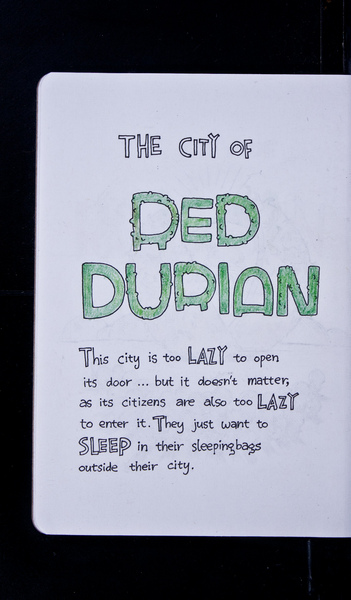 THE CITY OF
RED
DURIAN
This city is too LAZY to open
its door ... but it doesn't matter,
as its citizens are also too LAZY
to enter it. They just want to
SLEEP in their sleepingbags
outside their city.